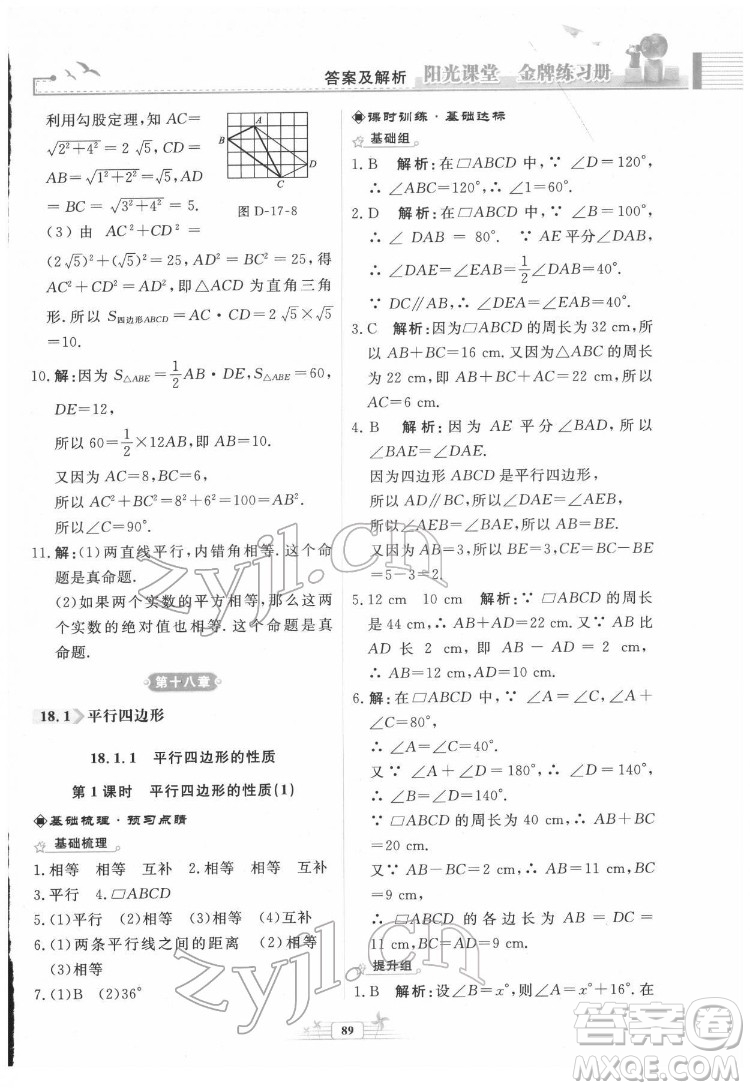 答案及解析 阳光课堂 金牌练习册
利用勾股定理,知 AC=
√(2²+4²)=2√5,CD=
AB=√(1²+2²)=√5,AD=
BC=√(3²+4²)=5.
A
B
D
C
图 D-17-8
(3)由 AC²+CD²=
(2√5)²+(√5)²=25,BC²=25,得
AC²+CD²=AD²,即△ACD 为直角三角
形.所以 S四边形ABCD=AC·CD=2√5×√5
=10.
10.解:因为 S△ABE=1/2AB·DE,S△ABE=60,
DE=12,
所以 60=1/2×12AB,即 AB=10.
又因为 AC=8,BC=6,
所以 AC²+BC²=8²+6²=100=AB².
所以∠C=90°.
11.解:(1)两直线平行,内错角相等.这个命
题是真命题.
(2)如果两个实数的平方相等,那么这两
个实数的绝对值也相等.这个命题是真
命题.
第十八章
18.1 平行四边形
18.1.1 平行四边形的性质
第1课时 平行四边形的性质(1)
基础梳理·预习点睛
基础梳理
1.相等 相等 互补 2.相等 相等 互补
3.平行 4.□ABCD
5.(1)平行 (2)相等 (3)相等 (4)互补
6.(1)两条平行线之间的距离 (2)相等
(3)相等
7.(1)B (2)36°
课时训练·基础达标
基础组
1.B 解析:在□ABCD 中,∵∠D=120°,
∴∠ABC=120°,∴∠1=60°.
2.D 解析:在□ABCD 中,∵∠B=100°,
∴∠DAB=80°. ∵AE平分∠DAB,
∴∠DAE=∠EAB=1/2∠DAB=40°.
∵DC∥AB,∴∠DEA=∠EAB=40°.
3.C 解析:因为□ABCD 的周长为 32 cm,所
以 AB+BC=16 cm.又因为△ABC 的周长
为 22 cm,即 AB+BC+AC=22 cm,所以
AC=6 cm.
4.B 解析:因为 AE 平分∠BAD,所以
∠BAE=∠DAE.
因为四边形 ABCD 是平行四边形,
所以 AD∥BC,所以∠DAE=∠AEB,
所以∠BAE=∠AEB,所以 AB=BE.
又因为 AB=3,所以 BE=3,所以 EC=BC-BE
=5-3=2.
5.12 cm 10 cm 解析:∵□ABCD 的周长
是 44 cm,∴AB+AD=22 cm.又∵AB 比
AD 长 2 cm,即 AB-AD=2 cm,
∴AB=12 cm,AD=10 cm.
6.解:在□ABCD 中,∵∠A=∠C,∠A+
∠C=180°,
∴∠A=∠C=90°.
又∵∠A+∠D=180°,∴∠D=90°,
∴∠B=90°.
又∵□ABCD 的周长为 40 cm,∴AB+BC
=20 cm.又∵BC-AB=2 cm,∴BC=
11 cm,AB=9 cm,
∴□ABCD 的各边长为 AB=DC=
9 cm,AD=BC=11 cm.
提升组
1.B 解析:设∠B=x°,则∠A=x°+16°.在
89
zyjl.cn
zyjl.cn
答案圈
MXQE.COM